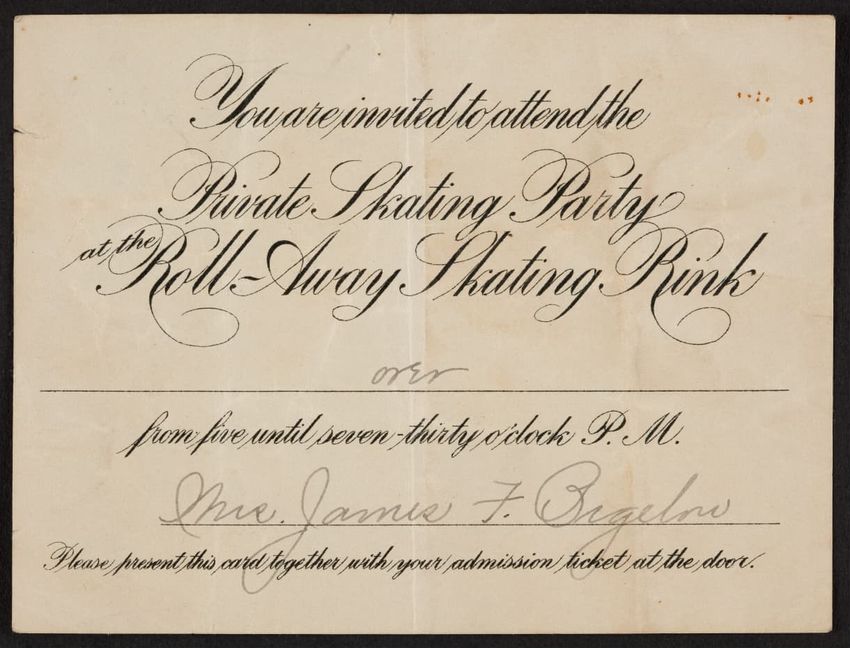 You are invited to attend the
Private Skating Party
at the Roll-Away Skating Rink
over
from five until seven-thirty o'clock P. M.
Mrs. James F. Bigelow
Please present this card together with your admission ticket at the door.